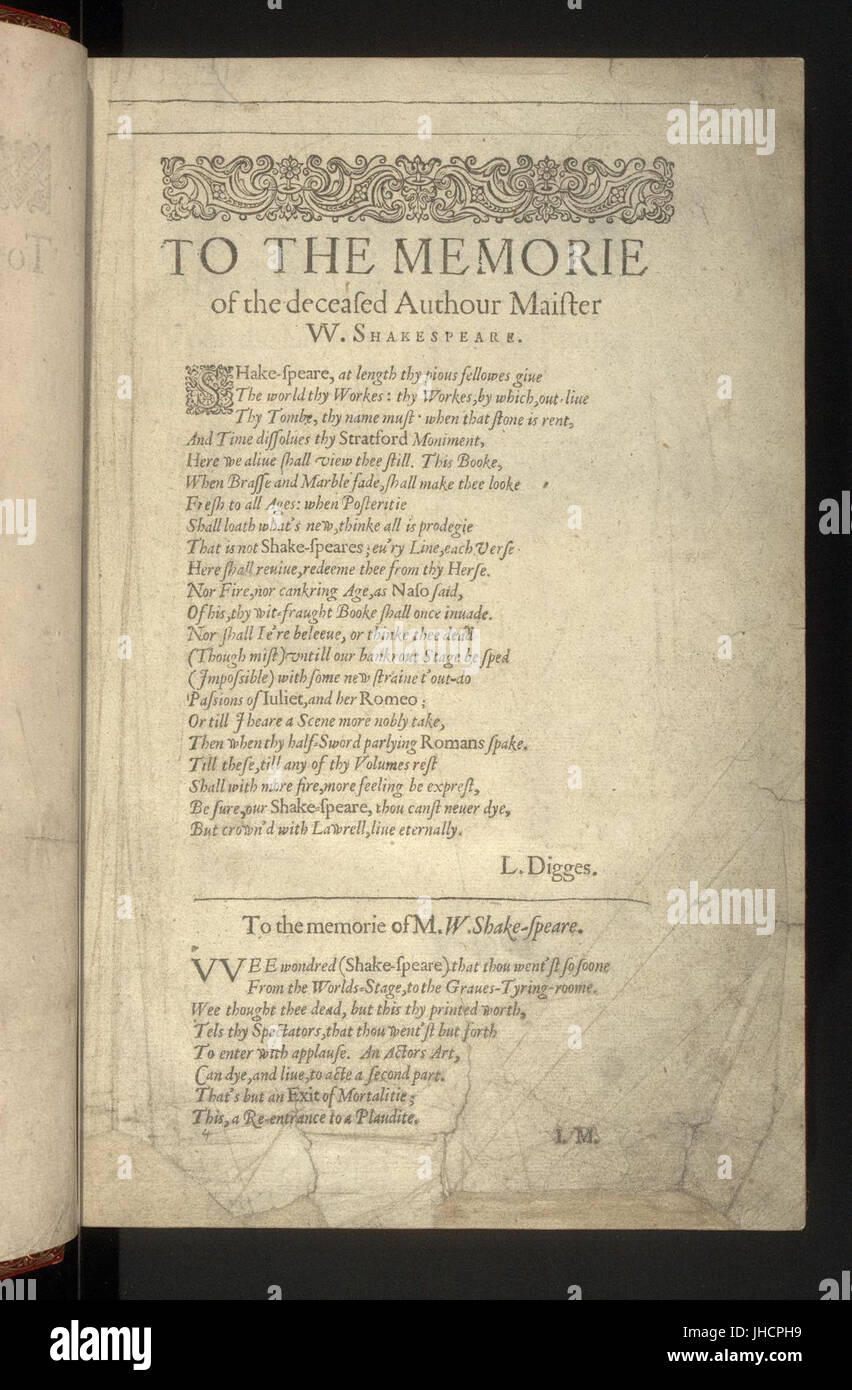 TO THE MEMORIE
of the deceaſed Authour Maiſter
W. SHAKESPEARE.
SHake-ſpeare, at length thy pious fellowes giue
The world thy Workes: thy Workes, by which, out-liue
Thy Tombe, thy name muſt when that ſtone is rent,
And Time diſſolues thy Stratford Moniment,
Here we aliue ſhall view thee ſtill. This Booke,
When Braſſe and Marble fade, ſhall make thee looke
Freſh to all Ages: when Poſteritie
Shall loath what's new, thinke all is prodegie
That is not Shake-ſpeares; eu'ry Line, each Verſe
Here ſhall reuiue, redeeme thee from thy Herſe.
Nor Fire, nor cankring Age, as Naſo ſaid,
Of his, thy wit-fraught Booke ſhall once inuade.
Nor ſhall I e're beleeue, or thinke thee dead
(Though miſt) vntill our bankrout Stage be ſped
(Impoſsible) with ſome new ſtraine t'out-do
Paſsions of Iuliet, and her Romeo;
Or till I heare a Scene more nobly take,
Then when thy half-Sword parlying Romans ſpake.
Till theſe, till any of thy Volumes reſt
Shall with more fire, more feeling be expreſt,
Be ſure, our Shake-ſpeare, thou canſt neuer dye,
But crown'd with Lawrell, liue eternally.
L. Digges.
To the memorie of M. W. Shake-ſpeare.
VVEE wondred (Shake-ſpeare) that thou went'ſt ſo ſoone
From the Worlds-Stage, to the Graues-Tyring-roome.
Wee thought thee dead, but this thy printed worth,
Tels thy Spectators, that thou went'ſt but forth
To enter with applauſe. An Actors Art,
Can dye, and liue, to acte a ſecond part.
That's but an Exit of Mortalitie;
This, a Re-entrance to a Plaudite.
I. M.
alamy
a
alamy stock photo
Image ID: JHCPH9
www.alamy.com